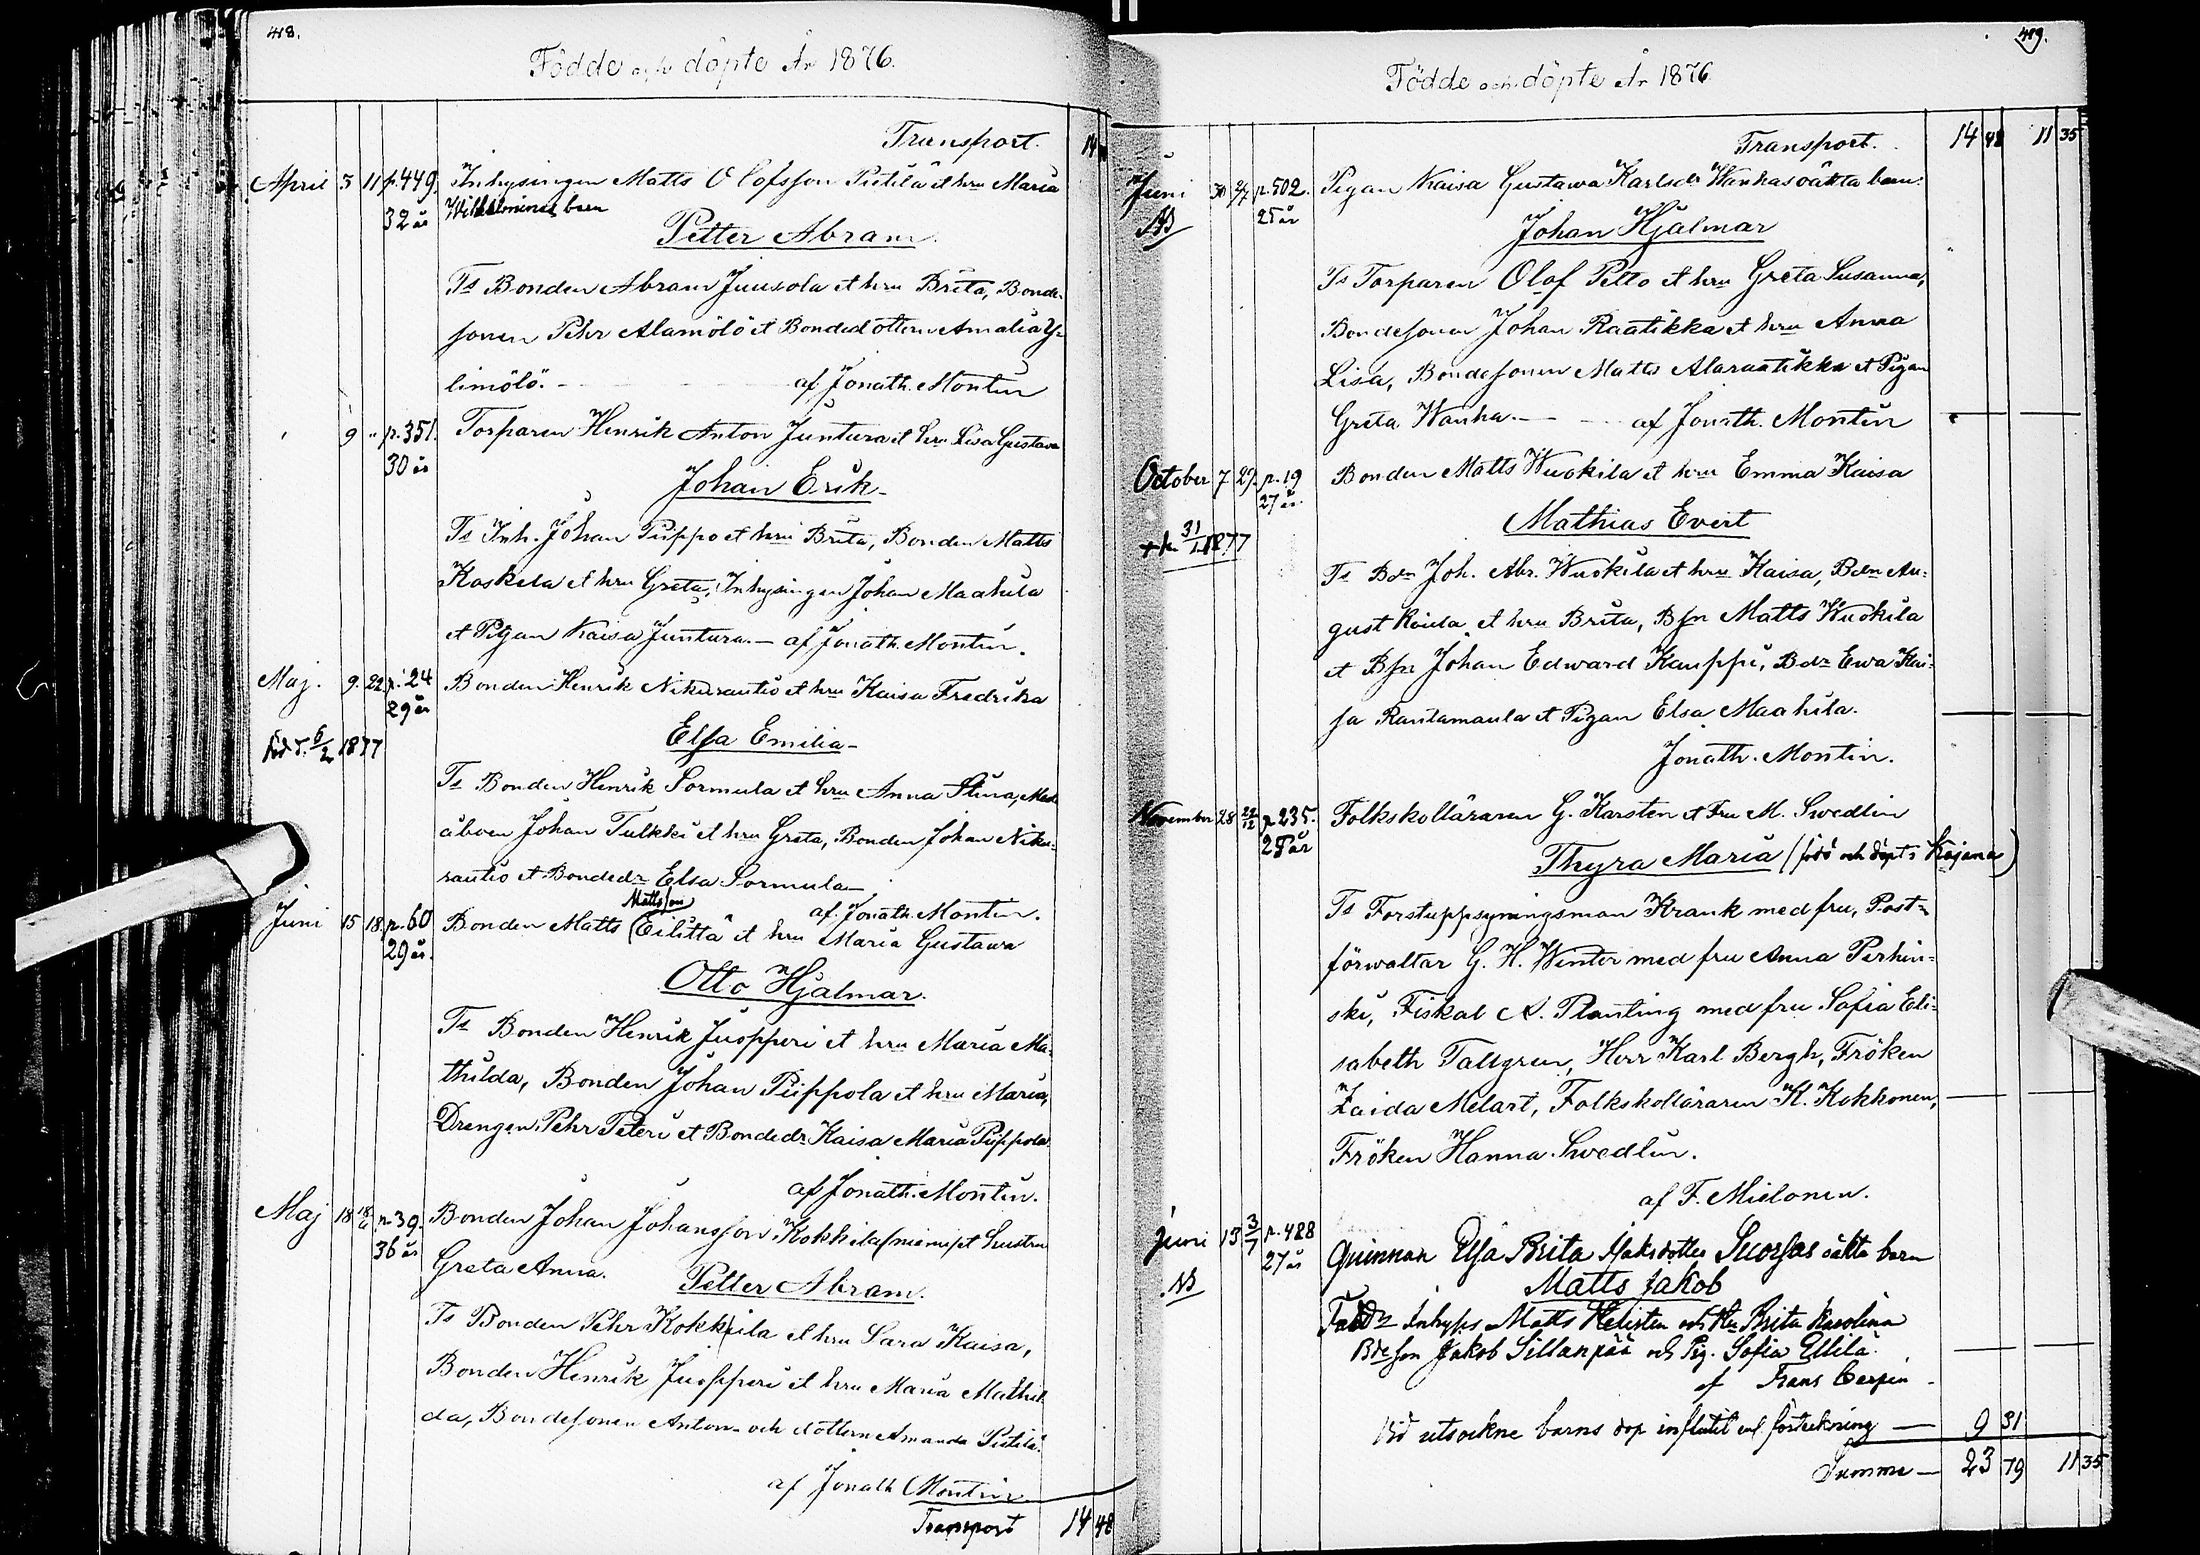 418.
Födde och döpte År 1876.
Transport. 14
April 3 11 p.449. Inhysingen Matts Olofsson Pietilä et hru Maria
32 år Wilhelminas barn
Petter Abram.
Ts Bonden Abram Juusola et hru Brita, Bonde-
sonen Pehr Alamölö et Bondedottern Amalia Y-
limölö. - af Jonath. Montin
9 " p.351. Torparen Henrik Anton Juntura et hru Lisa Gustava
30 år
Johan Erik-
Ts Inh. Johan Piippo et hru Brita, Bonden Matts
Koskela et hru Greta, Inhysingen Johan Maahila
et Pigan Kaisa Juntura. - af Jonath. Montin.
Maj. 9. 22. p.24 Bonden Henrik Nikurautio et hru Kaisa Fredrika
29 år
Elsa Emilia-
död d. 6/2 1877
Ts Bonden Henrik Sormula et hru Anna Stina, Med-
åboen Johan Tulkki et hru Greta, Bonden Johan Niku-
rautio et Bondedr Elsa Sormula
af Jonath. Montin.
Juni 15 18. p.60 Bonden Matts Mattsson (Eilittä et hru Maria Gustava
29 år.
Otto Hjalmar.
Ts Bonden Henrik Juopperi et hru Maria Ma-
thilda, Bonden Johan Piippola et hru Maria,
Drengen Pehr Peteri et Bondedr Kaisa Maria Piippola
af Jonath. Montin.
Maj 18 18/6 p.39. Bonden Johan Johansson Kokkila (niemi) et hustru
36 år Greta Anna. Petter Abram.
Ts Bonden Pehr Kokkila et hru Sara Kaisa,
Bonden Henrik Juopperi et hru Maria Mathil-
da, Bondesonen Anton och dottern Amanda Pietilä.
af Jonath Montin
Transport 14 48
419.
Födde och döpte År 1876
Transport. 14 48 11 35
Juni 30 2/7 p.502. Pigan Kaisa Gustawa Karlsdr Wanhas oäkta barn.
25 år
Johan Hjalmar
Ts Torparen Olof Pelto et hru Greta Susanna,
Bondesonen Johan Raatikka et hru Anna
Lisa, Bondesonen Matts Alaraatikka et Pigan
Greta Wanha. - af Jonath. Montin
October 7 29. p.19 Bonden Matts Wuokila et hru Emma Kaisa
27 år.
Mathias Evert
+ 31/1 1877
Ts Bdn Joh. Abr. Wuokila et hru Kaisa, Bdn Au-
gust Koula et hru Brita, Bsn Matts Wuokila
et Bsn Johan Edward Kauppi, Bdr Ewa Kai-
sa Rautamaula et Pigan Elsa Maahila.
Jonath. Montin.
November 28 22/12 p.235. Folkskolläraren G. Karsten et Fru M. Swedlin
25 år
Thyra Maria (född och döpt i Kajana)
Ts Forstuppsyningsman Krank med fru, Post-
förwaltar G. H. Winter med fru Anna Perhin-
ski, Fiskal A. Planting med fru Sofia Eli-
sabeth Tallgren, Herr Karl Bergh, Fröken
Zaida Melart, Folkskolläraren K. Kokkonen,
Fröken Hanna Swedlin.
af F. Mielonen.
Juni 13 3/7 p.488 Quinnan Elsa Brita Jaksdotter Suorsas oäkta barn
27 år
Matts Jakob
Inhyss Matts Helisten och Hu Brita Karolina
Bdeson Jakob Sillanpää och Pig. Sofia Ellilä.
af Frans Cerpin
Vid utsockne barns dop influtit enl. förteckning - 9 31
Summa - 23 79 11 35